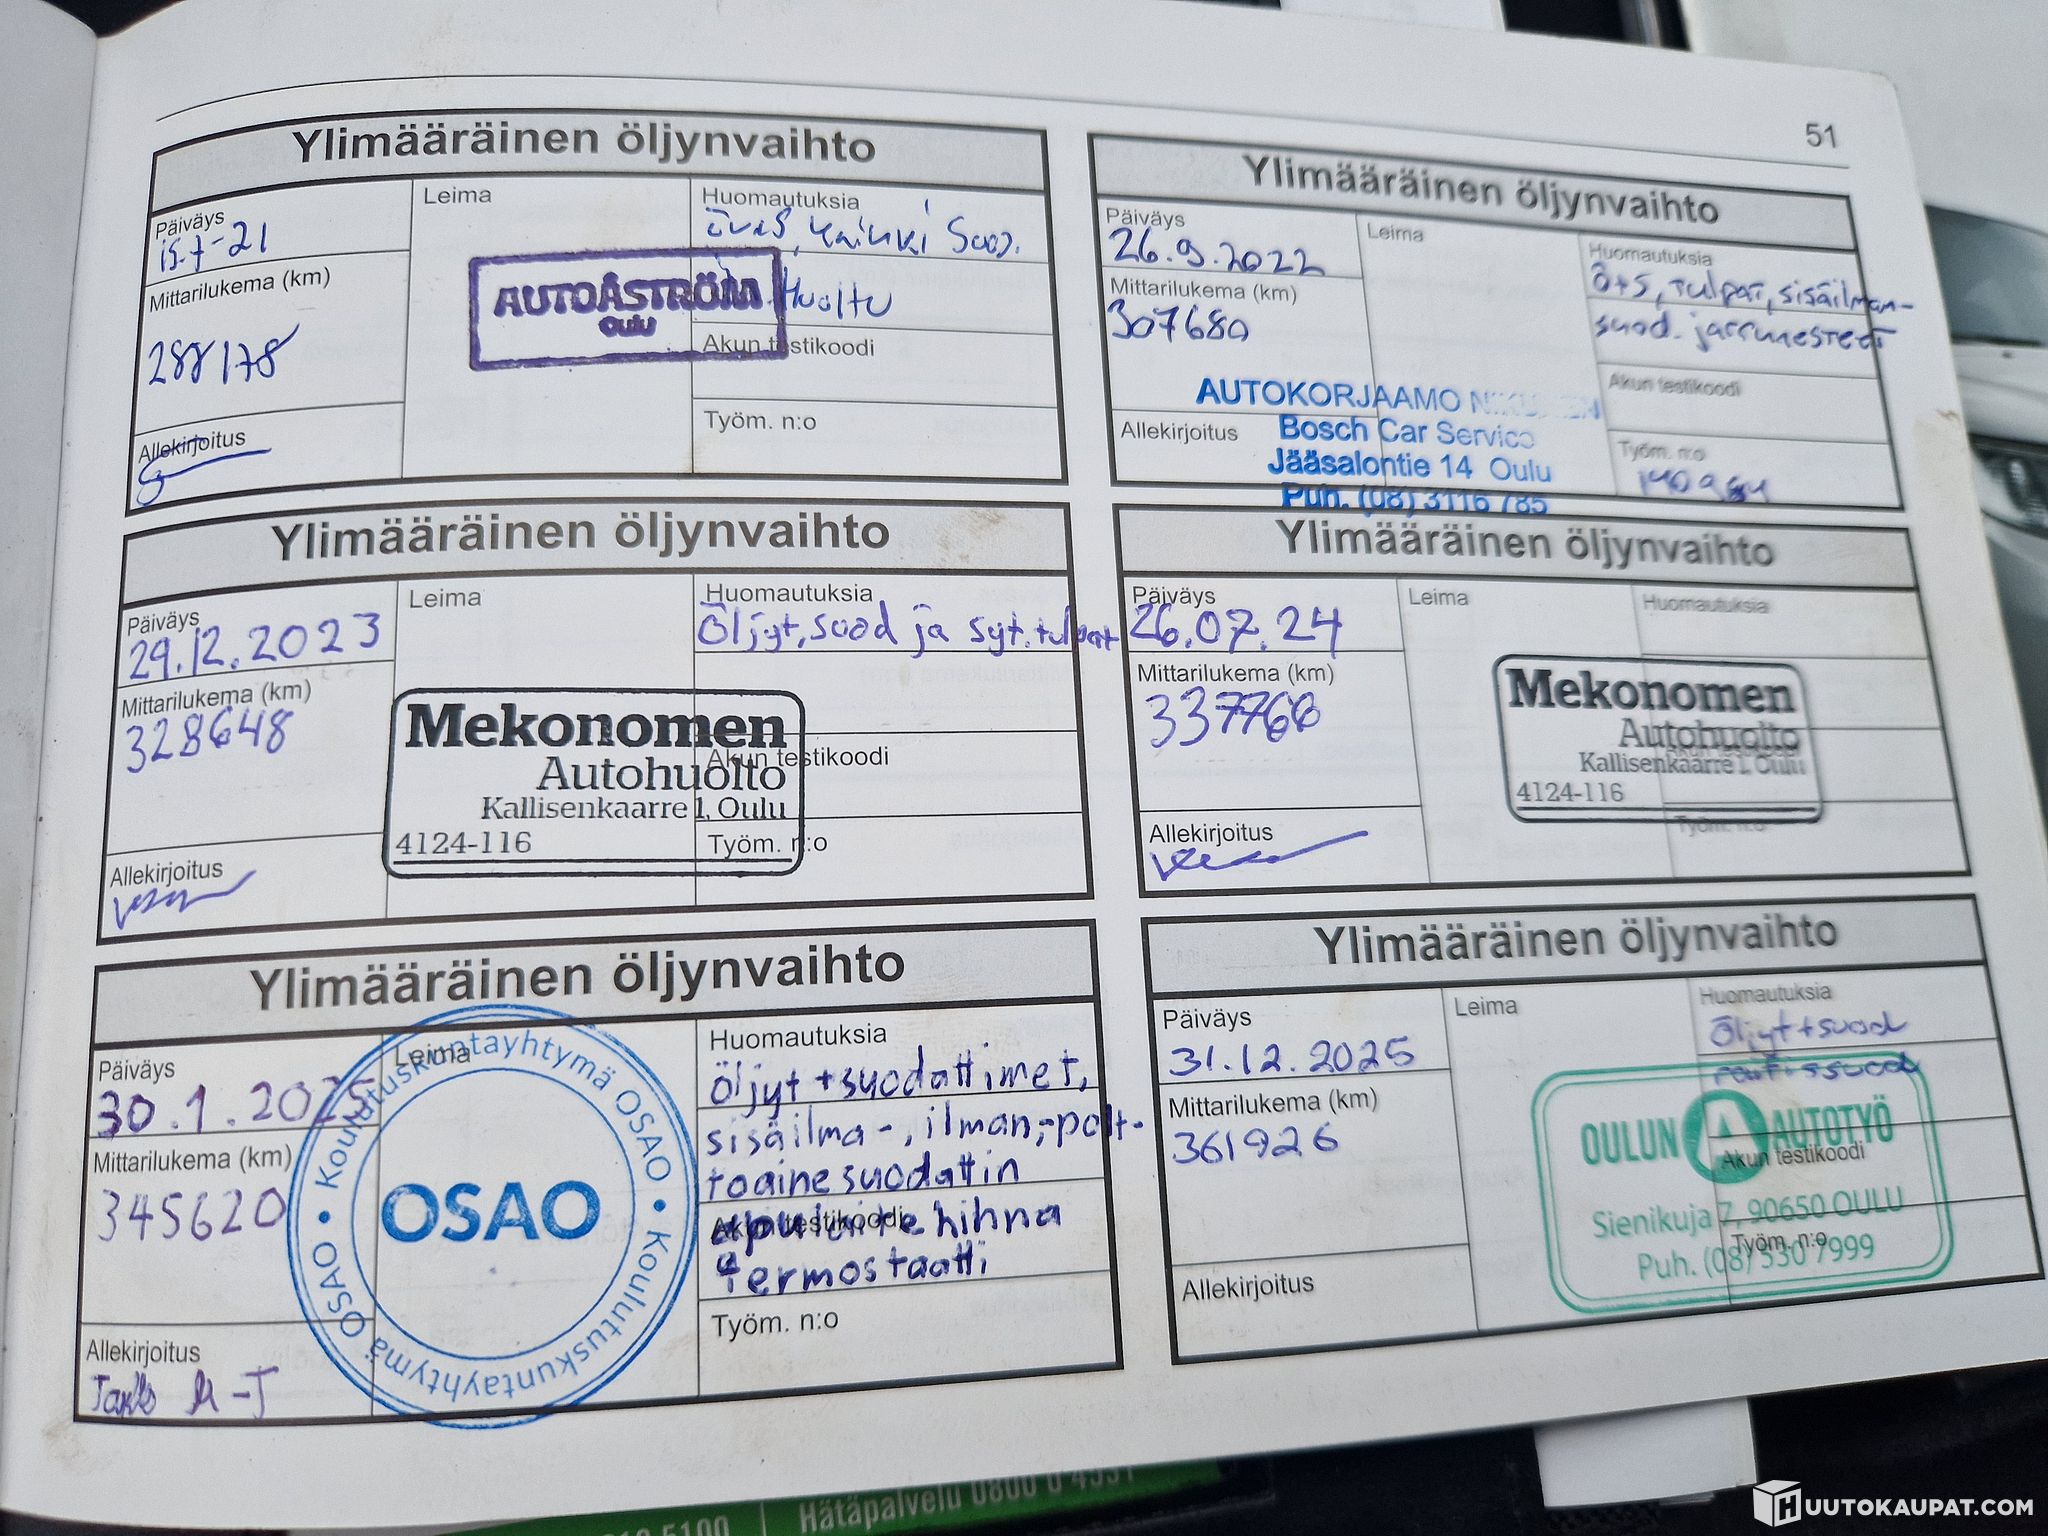 51
Ylimääräinen öljynvaihto
Päiväys
15.7-21
Leima
Huomautuksia
kaikki Suod.
Huolto
Mittarilukema (km)
288178
AUTOÅSTRÖM
Oulu
Akun testikoodi
Työm. n:o
Allekirjoitus
Ylimääräinen öljynvaihto
Päiväys
26.9.2022
Leima
Huomautuksia
Ö+S, Tulpat, sisäilman-
suod. jarrunesteet
Mittarilukema (km)
307680
Akun testikoodi
AUTOKORJAAMO
Bosch Car Service
Jääsalontie 14 Oulu
Puh. (08) 3116 785
Allekirjoitus
Työm. n:o
Ylimääräinen öljynvaihto
Päiväys
29.12.2023
Leima
Huomautuksia
Öljyt, suod ja syt.tulpat
Mittarilukema (km)
328648
Mekonomen
Autohuolto
Kallisenkaarre 1, Oulu
4124-116
Akun testikoodi
Työm. n:o
Allekirjoitus
Ylimääräinen öljynvaihto
Päiväys
26.07.24
Leima
Huomautuksia
Mittarilukema (km)
337766
Mekonomen
Autohuolto
Kallisenkaarre 1, Oulu
4124-116
Työm. n:o
Allekirjoitus
Ylimääräinen öljynvaihto
Päiväys
30.1.2025
Leima
Huomautuksia
öljyt + suodattimet,
sisäilma-, ilman,-polt-
toainesuodattin
apulaite hihna
termostaatti
Mittarilukema (km)
345620
Koulutuskuntayhtymä OSAO • Koulutuskuntayhtymä OSAO •
OSAO
Akun testikoodi
Työm. n:o
Allekirjoitus
Ylimääräinen öljynvaihto
Päiväys
31.12.2025
Leima
Huomautuksia
Öljyt + suod
Mittarilukema (km)
361926
OULUN A AUTOTYÖ
Sienikuja 7, 90650 OULU
Puh. (08) 330 7999
Akun testikoodi
Työm. n:o
Allekirjoitus
5100 | Hätäpalvelu 0800 0 4551
HUUTOKAUPAT.COM